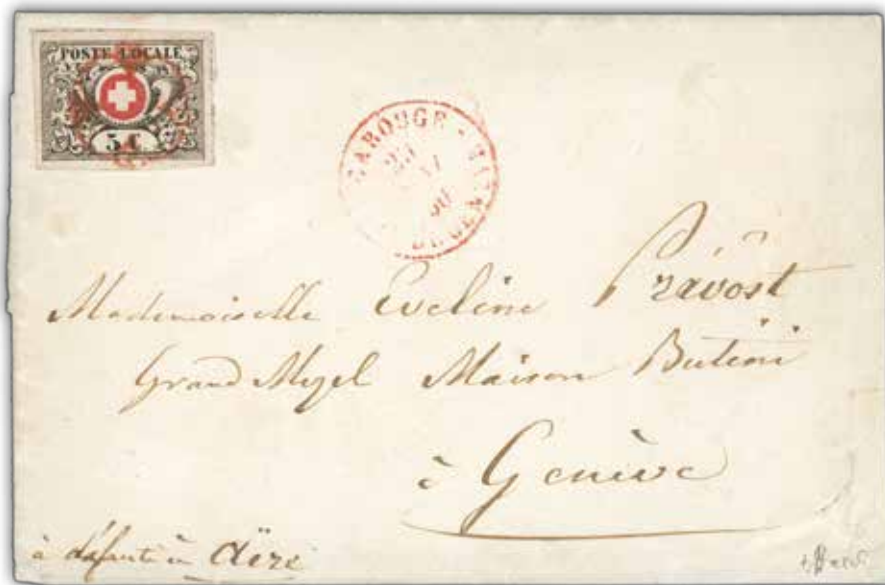 POSTE LOCALE
5 C
CAROUGE
Mademoiselle Eveline Prévost
Grand Mezel Maison Butini
à Genève
à défaut à Aïre